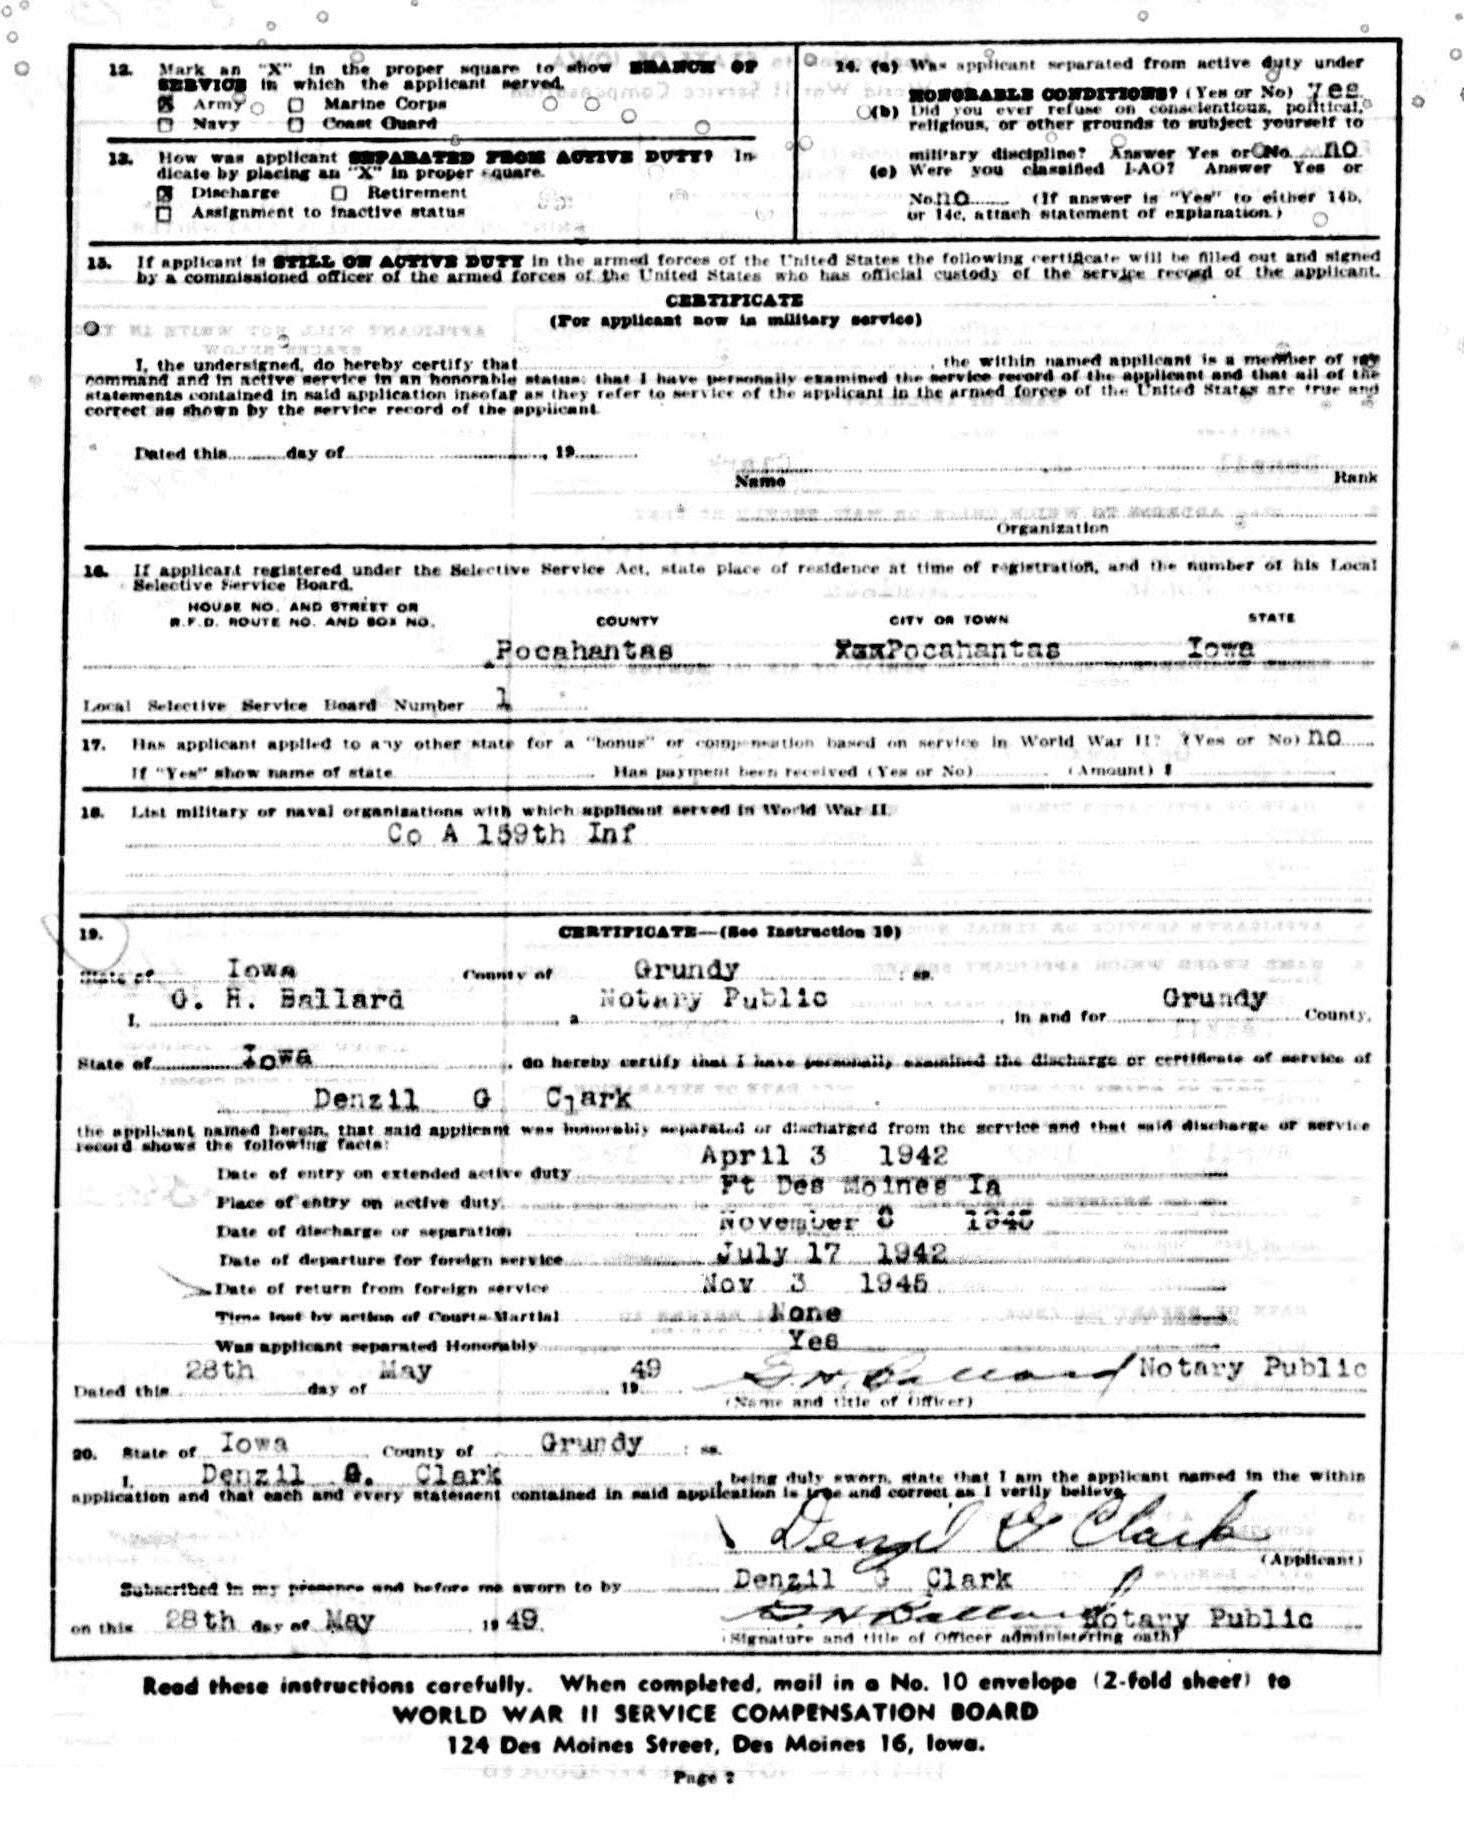 12. Mark an "X" in the proper square to show BRANCH OF
SERVICE in which the applicant served.
☒ Army ☐ Marine Corps
☐ Navy ☐ Coast Guard
13. How was applicant SEPARATED FROM ACTIVE DUTY? In-
dicate by placing an "X" in proper square.
☒ Discharge ☐ Retirement
☐ Assignment to inactive status
14. (a) Was applicant separated from active duty under
HONORABLE CONDITIONS? (Yes or No) yes
(b) Did you ever refuse on conscientious, political,
religious, or other grounds to subject yourself to
military discipline? Answer Yes or No. no
(c) Were you classified I-AO? Answer Yes or
No. no (If answer is "Yes" to either 14b,
or 14c, attach statement of explanation.)
15. If applicant is STILL ON ACTIVE DUTY in the armed forces of the United States the following certificate will be filled out and signed
by a commissioned officer of the armed forces of the United States who has official custody of the service record of the applicant.
CERTIFICATE
(For applicant now in military service)
I, the undersigned, do hereby certify that , the within named applicant is a member of my
command and in active service in an honorable status; that I have personally examined the service record of the applicant and that all of the
statements contained in said application insofar as they refer to service of the applicant in the armed forces of the United States are true and
correct as shown by the service record of the applicant.
Dated this day of , 19
Name Rank
Organization
16. If applicant registered under the Selective Service Act, state place of residence at time of registration, and the number of his Local
Selective Service Board.
HOUSE NO. AND STREET OR
R.F.D. ROUTE NO. AND BOX NO. COUNTY CITY OR TOWN STATE
Pocahantas Pocahantas Iowa
Local Selective Service Board Number 1
17. Has applicant applied to any other state for a "bonus" or compensation based on service in World War II? (Yes or No) no
If "Yes" show name of state Has payment been received (Yes or No) (Amount) $
18. List military or naval organizations with which applicant served in World War II.
Co A 159th Inf
19. CERTIFICATE—(See Instruction 19)
State of Iowa County of Grundy : ss.
I, G. H. Ballard a Notary Public , in and for Grundy County,
State of Iowa , do hereby certify that I have personally examined the discharge or certificate of service of
Denzil G Clark
the applicant named herein, that said applicant was honorably separated or discharged from the service and that said discharge or service
record shows the following facts:
Date of entry on extended active duty April 3 1942
Place of entry on active duty Ft Des Moines Ia
Date of discharge or separation November 8 1945
Date of departure for foreign service July 17 1942
Date of return from foreign service Nov 3 1945
Time lost by action of Courts-Martial None
Was applicant separated Honorably Yes
Dated this 28th day of May 19 49 G. H. Ballard Notary Public
(Name and title of Officer)
20. State of Iowa County of Grundy : ss.
I, Denzil G. Clark , being duly sworn, state that I am the applicant named in the within
application and that each and every statement contained in said application is true and correct as I verily believe.
Denzil G Clark
(Applicant)
Subscribed in my presence and before me sworn to by Denzil G Clark
on this 28th day of May 19 49. G. H. Ballard Notary Public
(Signature and title of Officer administering oath)
Read these instructions carefully. When completed, mail in a No. 10 envelope (2-fold sheet) to
WORLD WAR II SERVICE COMPENSATION BOARD
124 Des Moines Street, Des Moines 16, Iowa.
Page 2